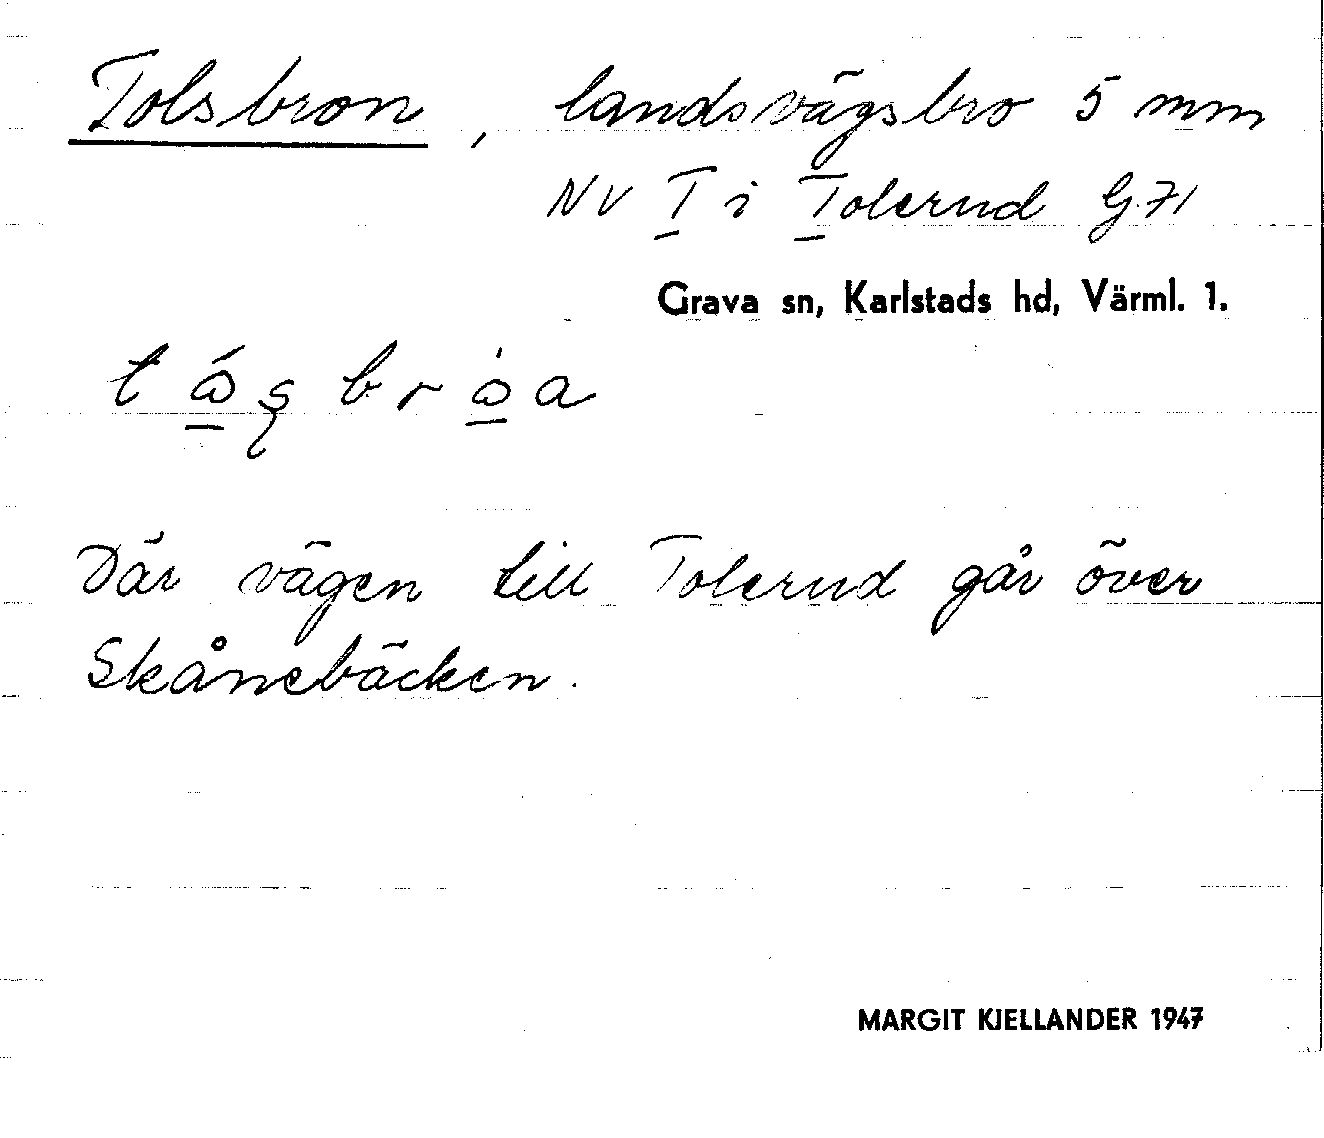 Tolsbron, landsvägsbro 5 mm
NV T i Tolerud G. 71
Grava sn, Karlstads hd, Värml. 1.
Där vägen till Tolerud går över
Skånebäcken.
MARGIT KJELLANDER 1947